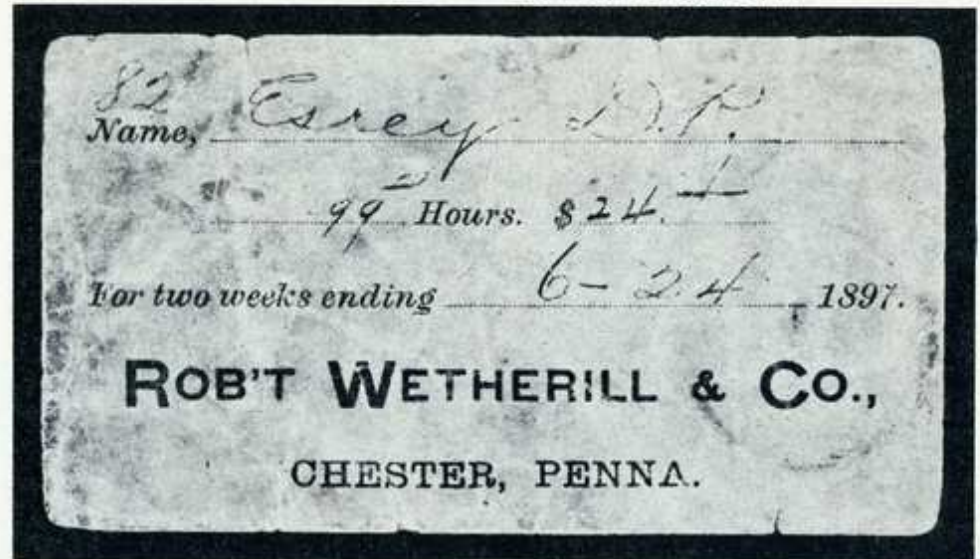 82
Name, Esrey D.P.
99 Hours. $24.
For two weeks ending 6-24 1897.
ROB'T WETHERILL & CO.,
CHESTER, PENNA.